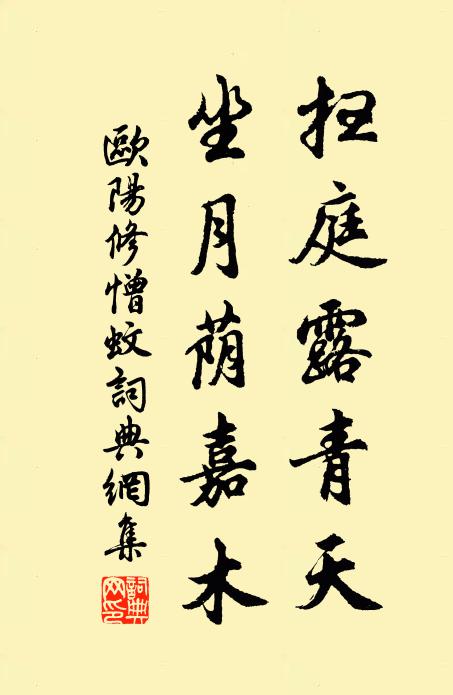 扫庭露青天
坐月荫嘉木
歐陽修憎蚊詞典網集
詞典网印